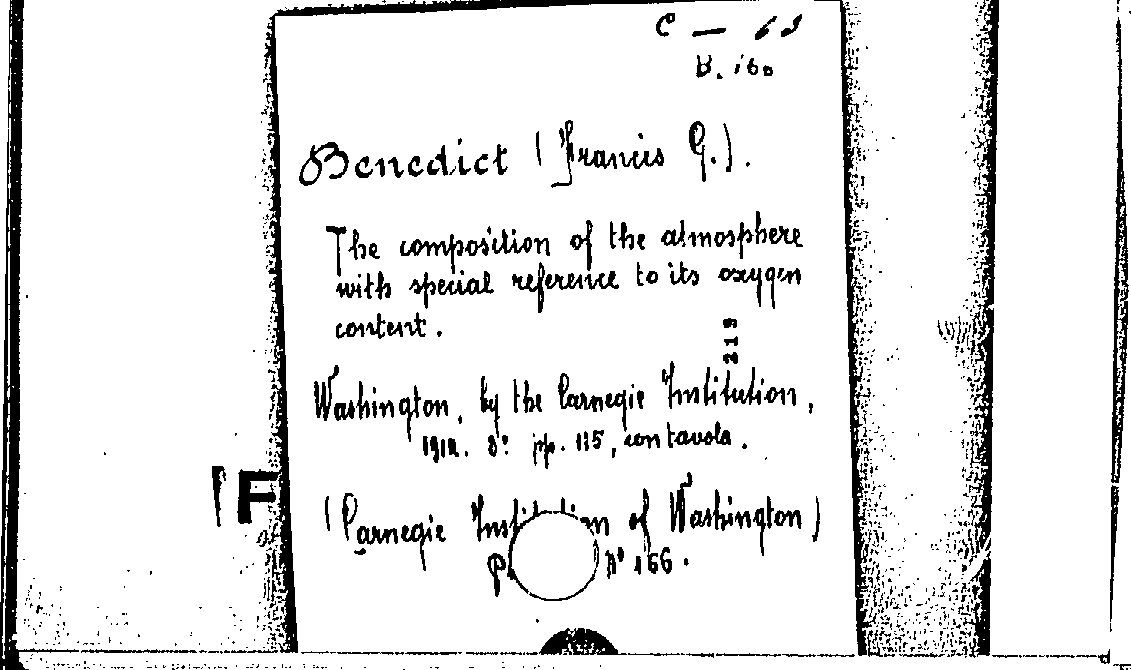 C — 63
B. 160
Benedict (Francis G.).
The composition of the atmosphere
with special reference to its oxygen
content.
219
Washington, by the Carnegie Institution,
1912. 8° pp. 115, con tavola.
(Carnegie Institution of Washington)
N° 166.
F